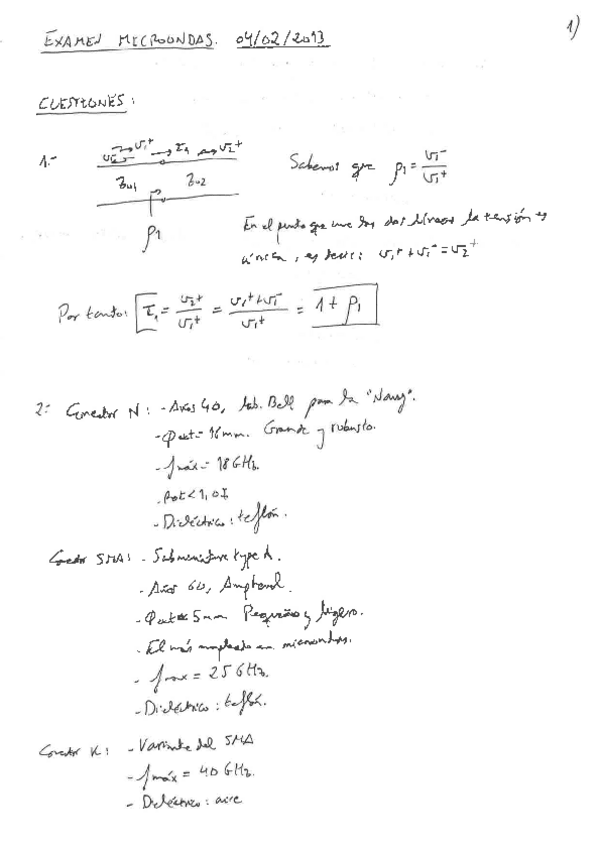 EXAMEN MICROONDAS. 04/02/2013
1)
CUESTIONES:
1.-
v₁⁻ → v₁⁺ → τ₁ → v₂⁺
Z₀₁ Z₀₂
ρ₁
Sabemos que ρ₁ = v₁⁻/v₁⁺
En el punto que une las dos líneas la tensión es
única, es decir: v₁⁺ + v₁⁻ = v₂⁺
Por tanto: τ₁ = v₂⁺/v₁⁺ = (v₁⁺ + v₁⁻)/v₁⁺ = 1 + ρ₁
2.- Conector N: - Años 40, lab. Bell para la "Navy".
- φext = 16mm. Grande y robusto.
- fmáx = 18 GHz.
- Dieléctrico: teflón.
Conector SMA: - Subminiature type A.
- Años 60, Amphenol.
- φext ≈ 5mm Pequeño y ligero.
- El más empleado en microondas.
- fmax = 25 GHz.
- Dieléctrico: teflón.
Conector K: - Variante del SMA
- fmáx = 40 GHz.
- Dieléctrico: aire